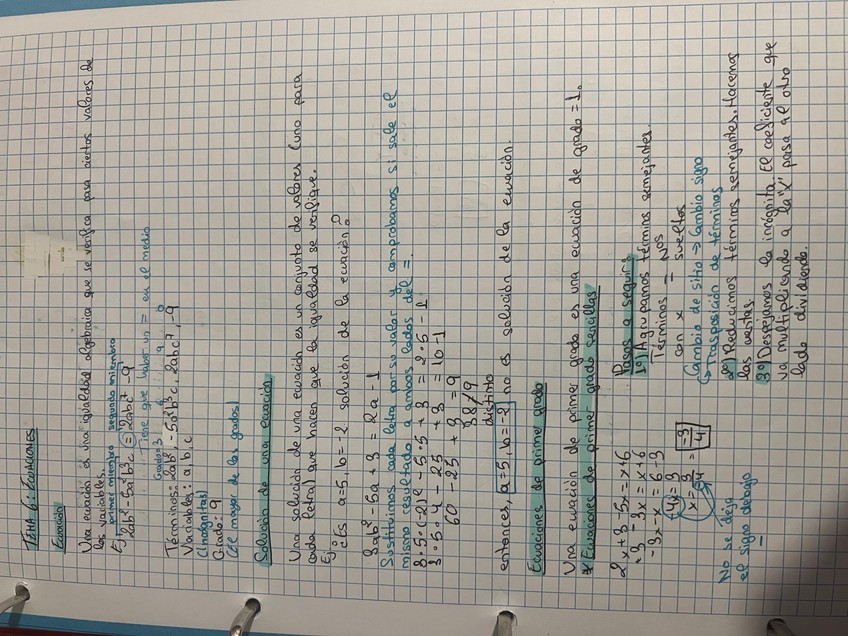 TEMA 6: ECUACIONES
Ecuación
Una ecuación es una igualdad algebraica que se verifica para ciertos valores de
las variables.
Ej: primer miembro segundo miembro
2ab² - 5a²b³c = 2abc⁷ - 9
Tiene que haber un = en el medio
Grados: 3
Términos: 2ab², -5a²b³c, 2abc⁷, -9
Variables: a, b, c
(Incógnitas)
Grado: 9
(el mayor de los grados)
Solución de una ecuación
Una solución de una ecuación es un conjunto de valores (uno para
cada letra) que hacen que la igualdad se verifique.
Ej:
¿Es a=5, b=-2 solución de la ecuación?
3ab² - 5a + 3 = 2a - 1
Sustituimos cada letra por su valor y comprobamos si sale el
mismo resultado a ambos lados del =.
3·5·(-2)² - 5·5 + 3 = 2·5 - 1
3·5·4 - 25 + 3 = 10 - 1
60 - 25 + 3 = 9
38 ≠ 9
distinto
entonces, a=5, b=-2 no es solución de la ecuación.
Ecuaciones de primer grado
Una ecuación de primer grado es una ecuación de grado = 1.
* Ecuaciones de primer grado sencillas
2x + 3 - 5x = x + 6
+3 - 3x = x + 6
-3x - x = 6 - 3
-4x = 3
x = 3/-4 = -3/4
No se deja
el signo debajo
Pasos a seguir:
1º) Agrupamos términos semejantes.
Términos = Nºs
con x = sueltos
Cambio de sitio → Cambio signo
↳ Trasposición de términos
2º) Reducimos términos semejantes. Hacemos
las cuentas.
3º) Despejamos la incógnita. El coeficiente que
va multiplicando a la "x" pasa al otro
lado dividiendo.